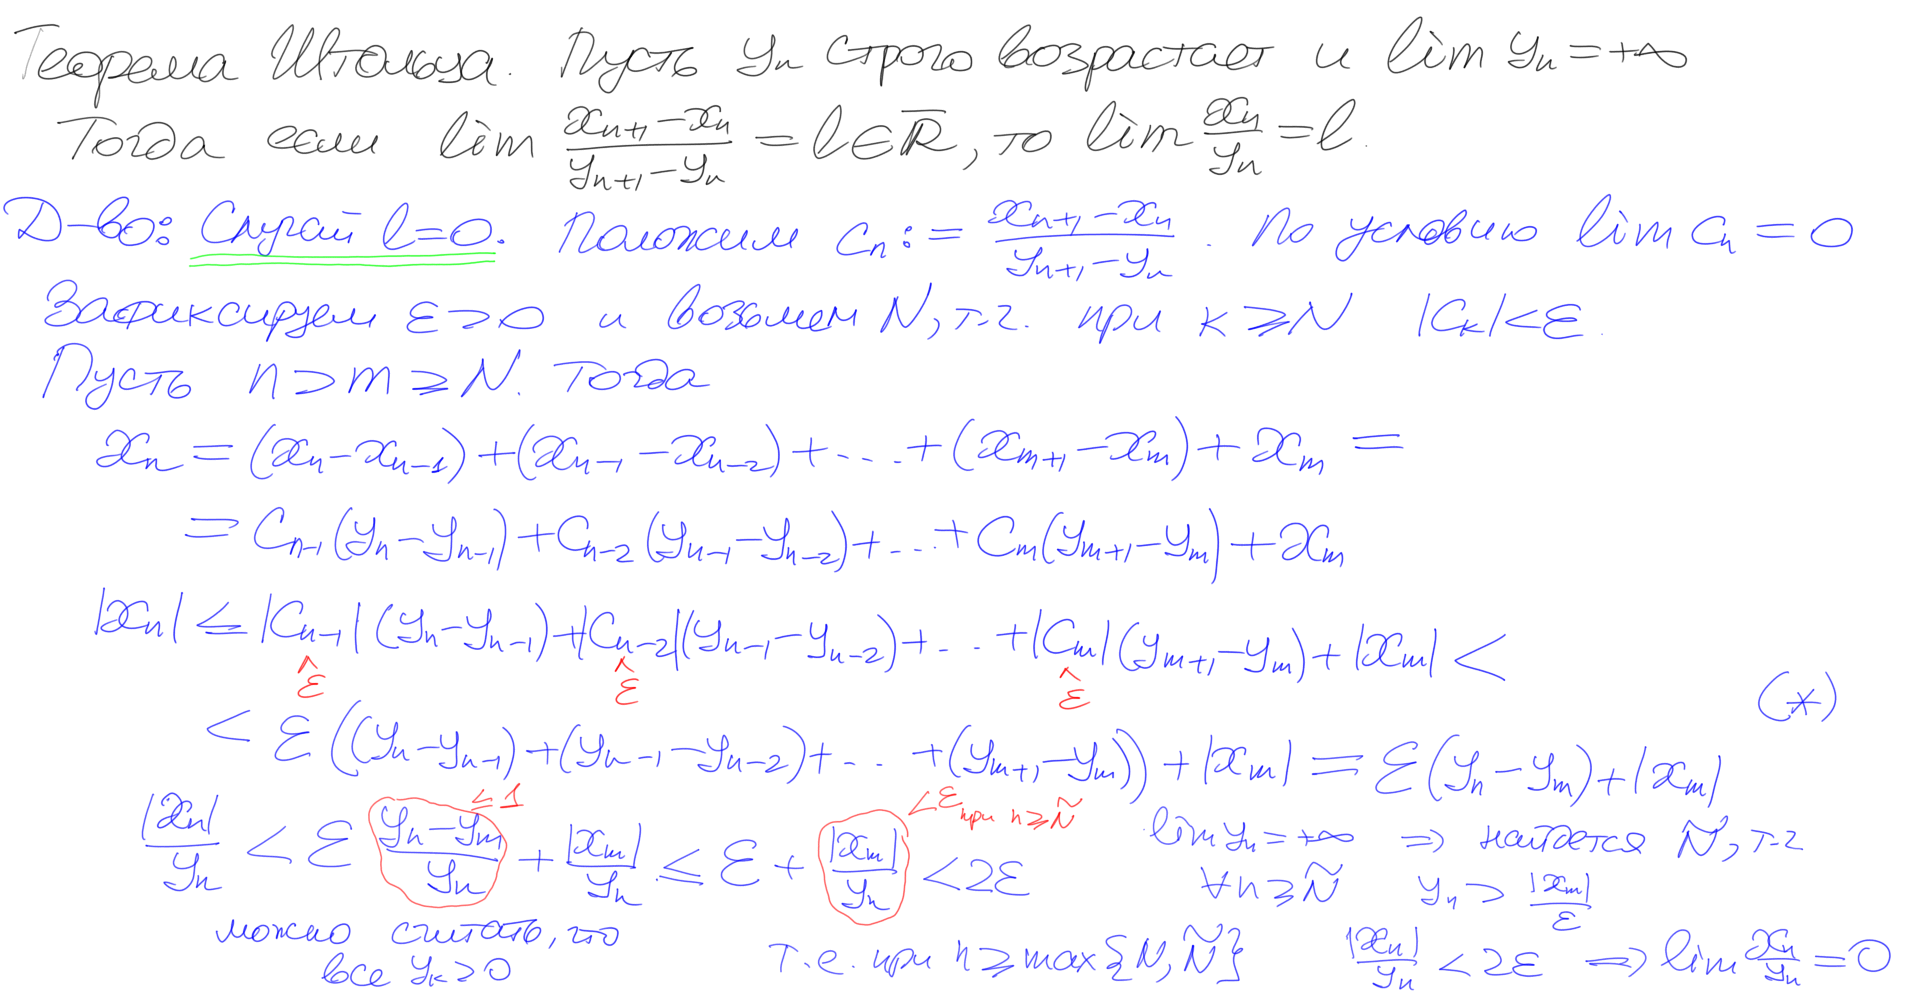 Теорема Штольца. Пусть yₙ строго возрастает и lim yₙ = +∞
Тогда если lim (xₙ₊₁ − xₙ)/(yₙ₊₁ − yₙ) = l ∈ R̅, то lim xₙ/yₙ = l.
Д-во: Случай l=0. Положим cₙ := (xₙ₊₁ − xₙ)/(yₙ₊₁ − yₙ). По условию lim cₙ = 0
Зафиксируем ε > 0 и возьмем N, т.ч. при k ⩾ N |cₖ| < ε.
Пусть n > m ⩾ N. Тогда
xₙ = (xₙ − xₙ₋₁) + (xₙ₋₁ − xₙ₋₂) + ... + (xₘ₊₁ − xₘ) + xₘ =
= cₙ₋₁(yₙ − yₙ₋₁) + cₙ₋₂(yₙ₋₁ − yₙ₋₂) + ... + cₘ(yₘ₊₁ − yₘ) + xₘ
|xₙ| ⩽ |cₙ₋₁|(yₙ − yₙ₋₁) + |cₙ₋₂|(yₙ₋₁ − yₙ₋₂) + ... + |cₘ|(yₘ₊₁ − yₘ) + |xₘ| <
^ ε ^ ε ^ ε
(*)
< ε((yₙ − yₙ₋₁) + (yₙ₋₁ − yₙ₋₂) + ... + (yₘ₊₁ − yₘ)) + |xₘ| = ε(yₙ − yₘ) + |xₘ|
⩽ 1
< ε при n ⩾ Ñ
|xₙ|/yₙ < ε (yₙ − yₘ)/yₙ + |xₘ|/yₙ ⩽ ε + |xₘ|/yₙ < 2ε
lim yₙ = +∞ ⇒ найдется Ñ, т.ч
∀n ⩾ Ñ yₙ > |xₘ|/ε
можно считать, что
все yₖ > 0
т.е. при n ⩾ max{N, Ñ} |xₙ|/yₙ < 2ε ⇒ lim xₙ/yₙ = 0